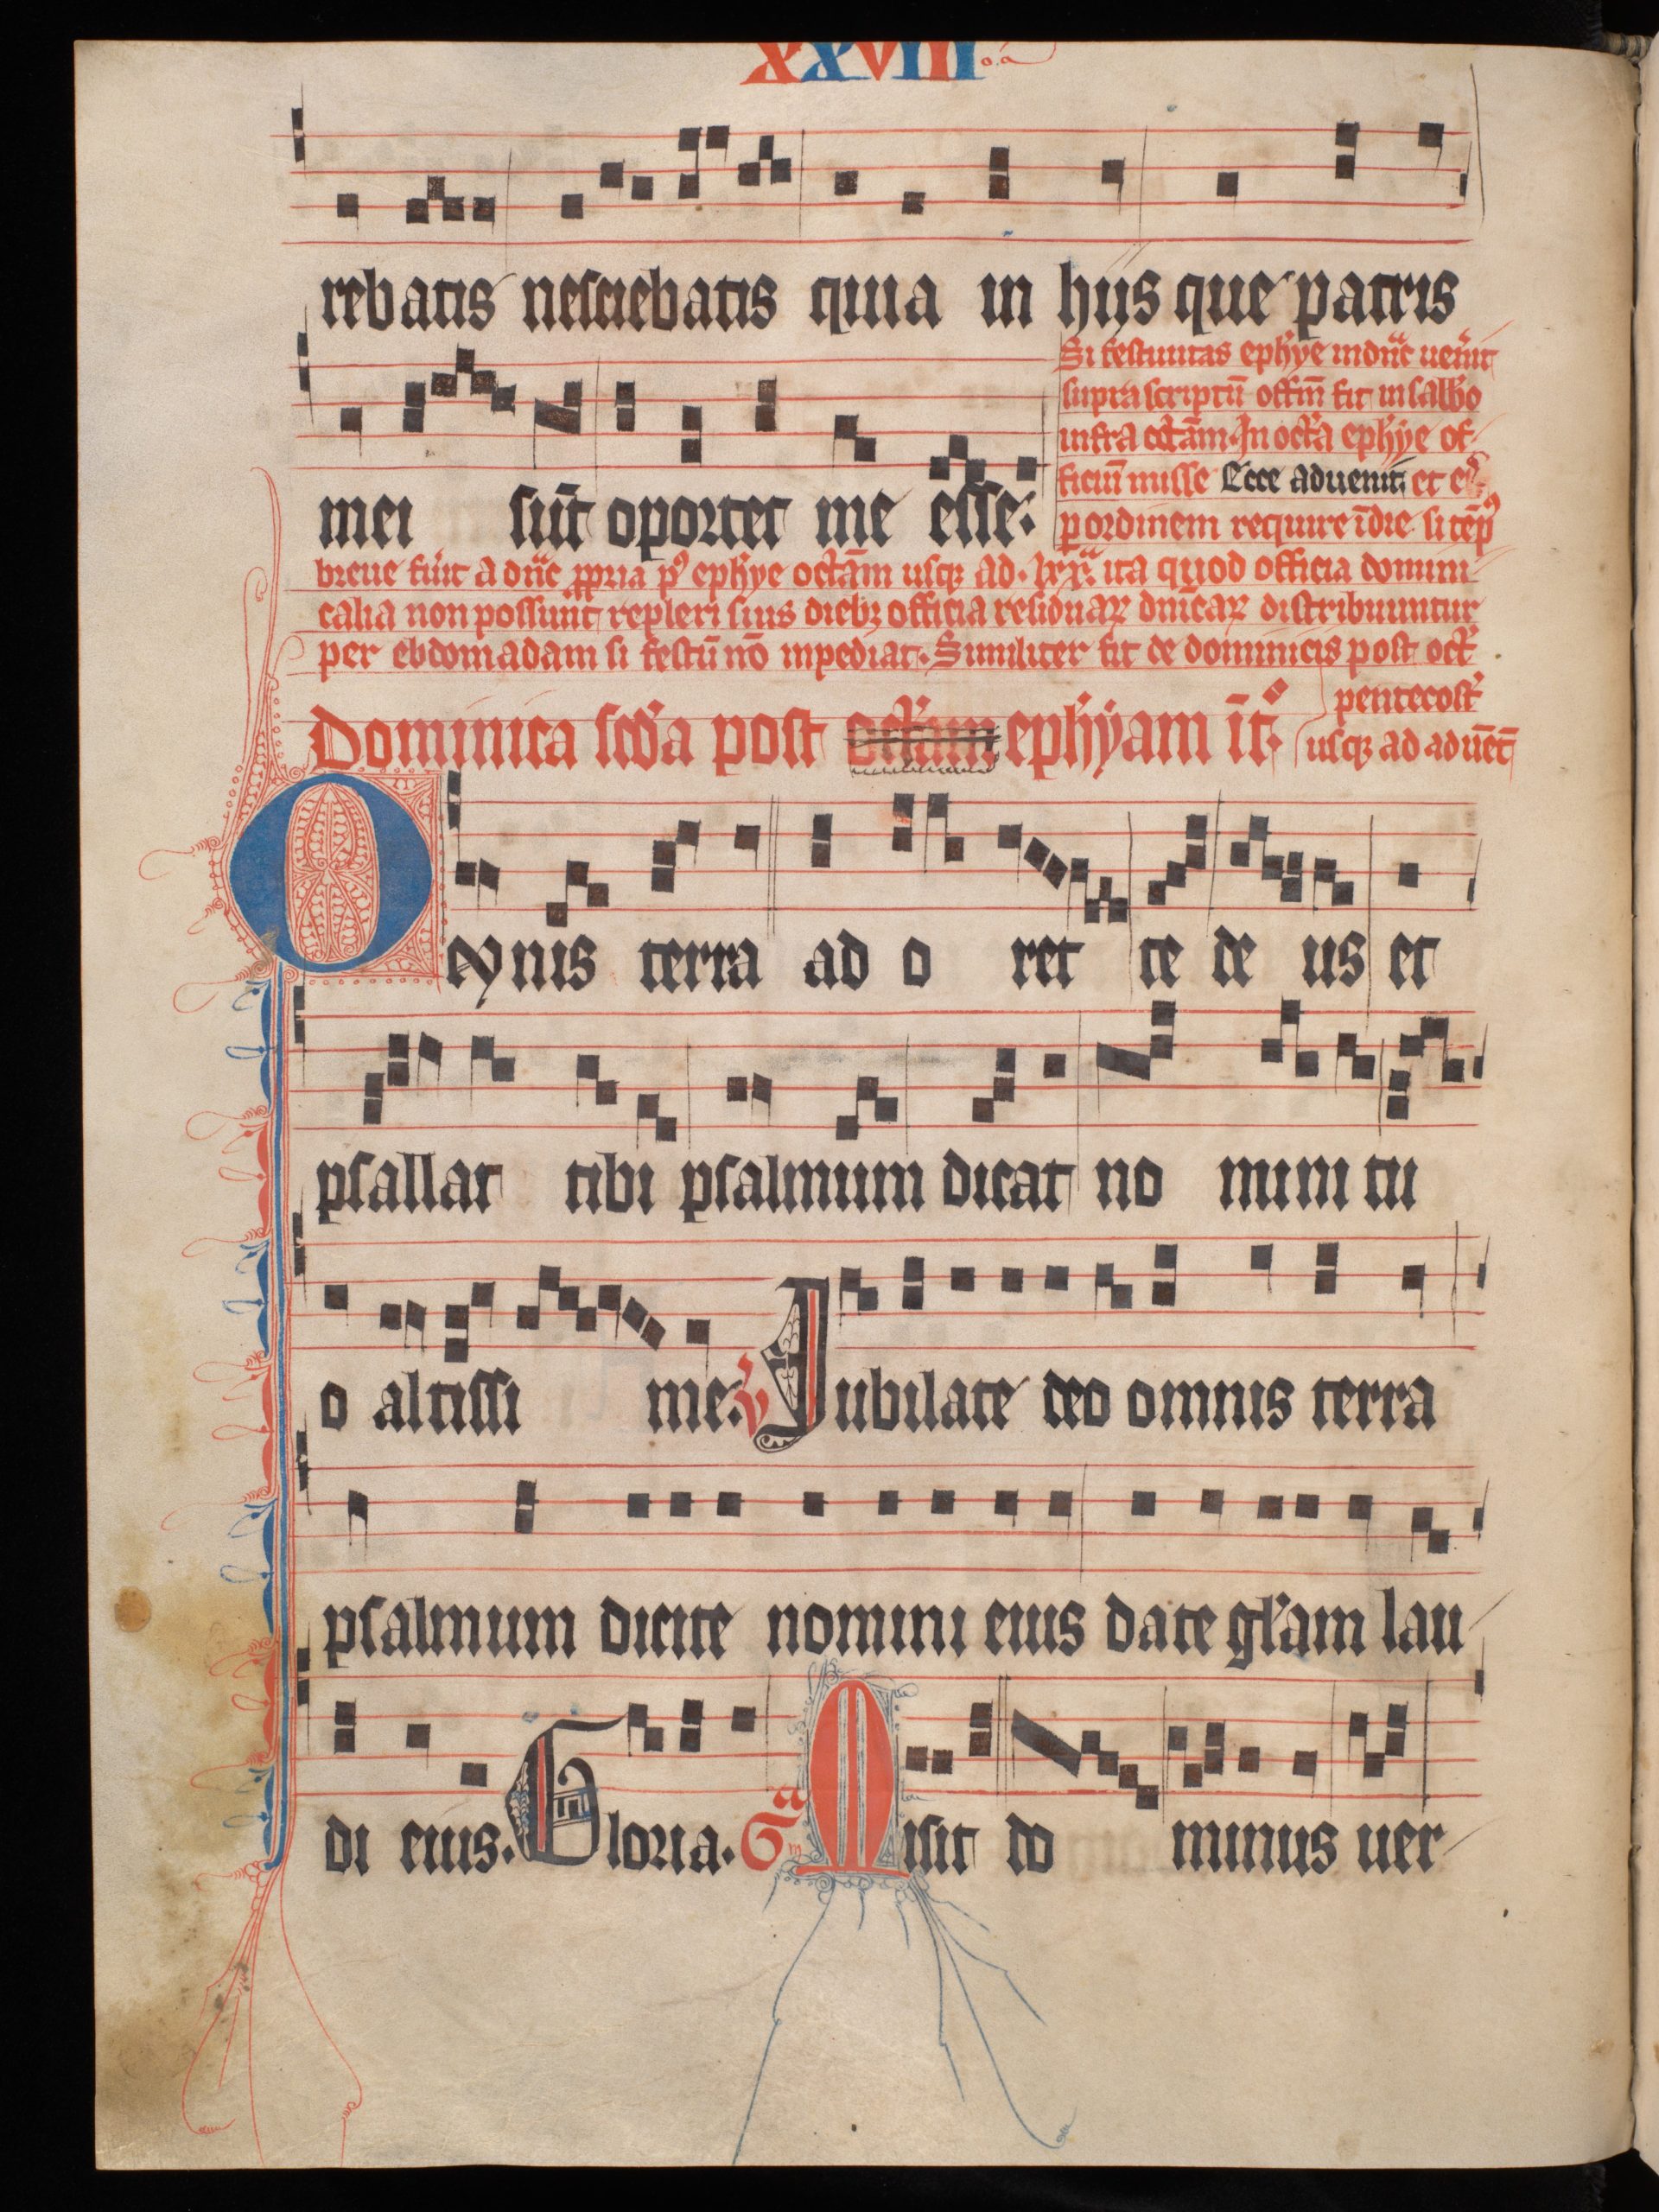 XXVIII
rebatis nesciebatis quia in hijs que patris
Si festiuitas eph'ye in dn̄ic uen̄it
suprascriptū offm̄ fit in sabb'o
infra octām. In oct'a eph'ye of-
ficiū misse Ecce aduenit et
p ordinem require īdie si tēp9
mei sūt oportet me esse.
breue fu'it a dn̄ic ppria p9 eph'ye octām usq; ad .lxx.a ita quod officia domini-
calia non possunt repleri suis dieb; officia residuaꝝ dnīcaꝝ distribuuntur
per ebdomadam si festū nō inpediat. Similiter fit de dominicis post oct'
pentecost'
usq; ad aduēt
Dominica scd'a post octam eph'yam īt.
Omnis terra ad o ret te de us et
psallat tibi psalmum dicat no mini tu
o altissi me. v Jubilate deo omnis terra
psalmum dicite nomini eius date gl'am lau
di eius. Gloria. Gª Misit do minus uer